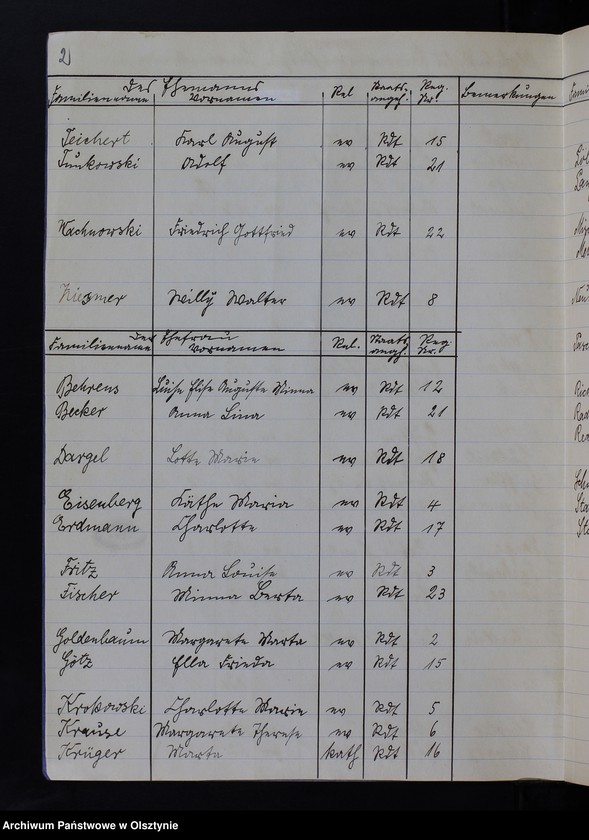 2
Des Ehemanns
Familienname Vornamen Rel Staats- angeh. Reg. Nr. Bemerkungen
Teichert Karl August ev Rdt 15
Tunkowski Adolf ev Rdt 21
Wachnowski Friedrich Gottfried ev Rdt 22
Willy Walter ev Rdt 8
Der Ehefrau
Familienname Vornamen Rel. Staats- angh. Reg. Nr.
Behrens Luise Elise Auguste Minna ev Rdt 12
Becker Anna Lina ev Rdt 21
Dargel Lotte Marie ev Rdt 18
Eisenberg Käthe Maria ev Rdt 4
Erdmann Charlotte ev Rdt 17
Fritz Anna Louise ev Rdt 3
Fischer Minna Berta ev Rdt 23
Goldenbaum Margarete Marta ev Rdt 2
Götz Ella Frieda ev Rdt 15
Krokowski Charlotte Marie ev Rdt 5
Krause Margarete Therese ev Rdt 6
Krüger Marta kath Rdt 16
Archiwum Państwowe w Olsztynie